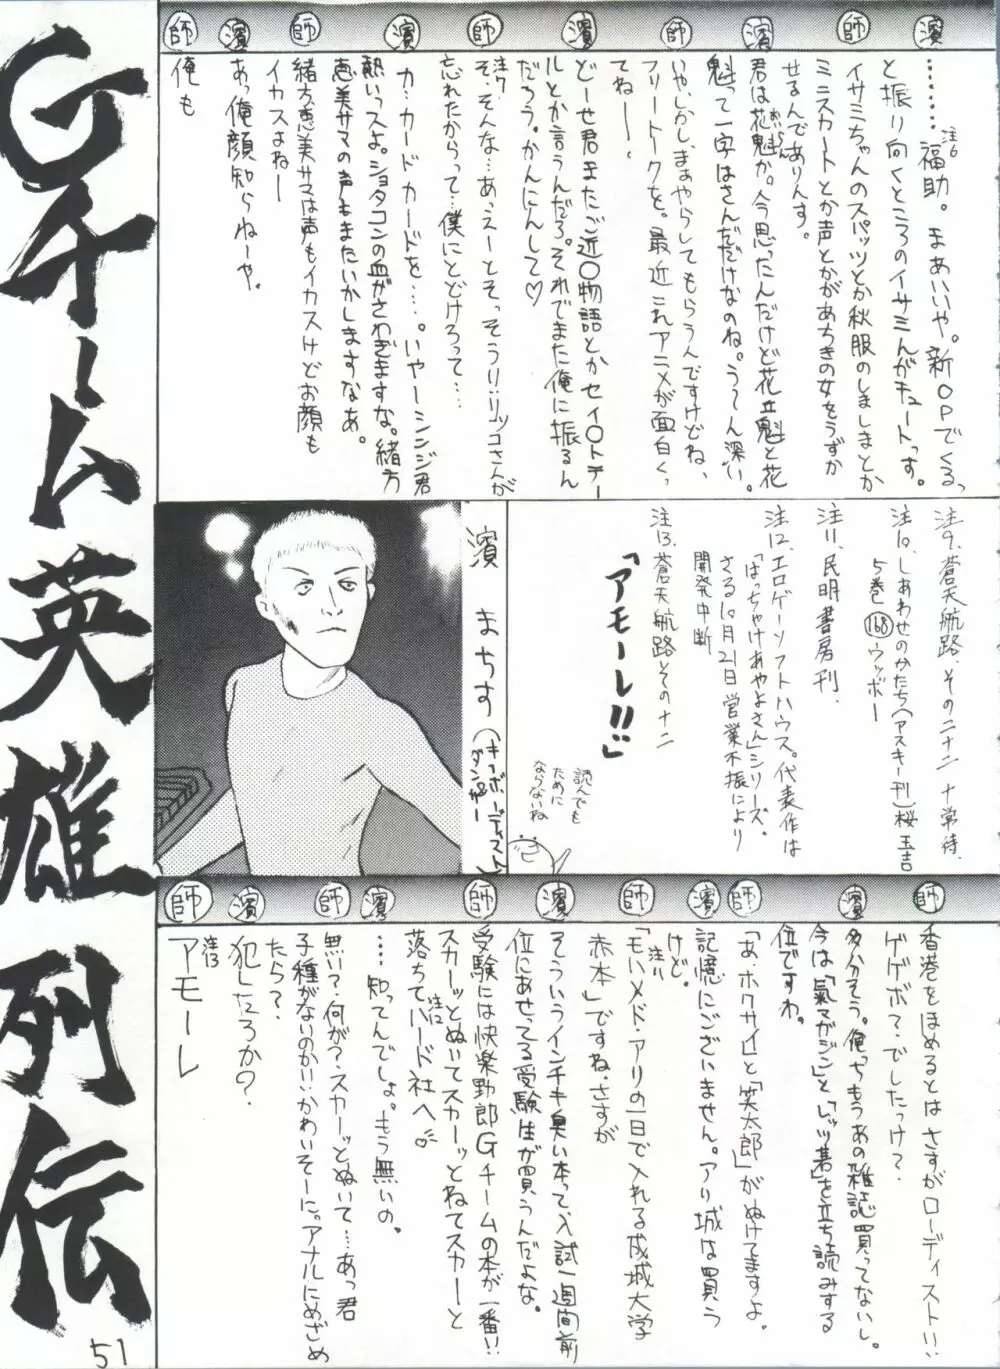 Gチーム英雄列伝
濱
………注6福助。まあいいや。新OPでくるっ
と振り向くところのイサミんがキュートっす。
師
イサミちゃんのスパッツとか秋服のしましまとか
ミニスカートとか声とかがあちきの女をうずか
せるんでありんす。
濱
君は花魁か。今思ったんだけど花魁と花
魁って一字はさんだだけなのね。う〜ん深い。
師
いや、しかし、まあやらしてもらうんですけどね、
フリートークを。最近これアニメが面白くっ
てねー。
濱
どーせ君またご近〇物語とかセイ〇トテー
ルとか言うんだろ。それでまた俺に振るん
だろう。かんにんして♡
師
注7そっそんな…あっえーとそっそう!!リツコさんが
忘れたからって…僕にとどけろって…
濱
カ・カードカードを…。いやーシンジ君
熱いっスよ。ショタコンの血がさわぎますな。緒方
恵美サマの声もまたいかしますなあ。
師
緒方恵美サマは声もイカスけどお顔も
イカスよねー
濱
あっ俺顔知らねーや。
師
俺も
注9、蒼天航路、その二十二 十常待、
注10、しあわせのかたち(アスキー刊)桜玉吉
5巻 168 ウッボー
注11、民明書房刊
注12、エロゲーソフトハウス。代表作は
「はっちゃけあやよさん」シリーズ。
さる10月21日営業不振により
開発中断
注13、蒼天航路その十二
「アモーレ!!」
読んでも
ために
ならないね
濱 まちす(キーボーディスト&ダンサー)
師
香港をほめるとはさすがローディスト!!
ゲゲボ?でしたっけ?
濱
多分そう。俺っちもうあの雑誌買ってないし。
今は「氣マガジン」と「レッツ碁」を立ち読みする
位ですわ。
師
「あ、ホクサイ」と「笑太郎」がぬけてますよ。
濱
記憶にございません。アリ城は買う
けど。
師
「モハメド・アリの一日で入れる成城大学
赤本」注11ですね。さすが
濱
そういうインチキ臭い本って、入試一週間前
位にあせってる受験生が買うんだよな。
師
受験には快楽野郎Gチームの本が一番!!
スカーッとぬいてスカーッとねてスカーと
落ちてハード社へ注12
濱
…知ってんでしょ。もう無いの。
師
無い?何が?スカーッとぬいて…あっ君
子種がないのかい!かわいそーに。アナルにめざめ
たら?
濱
犯したろか?
師
注13アモーレ
51